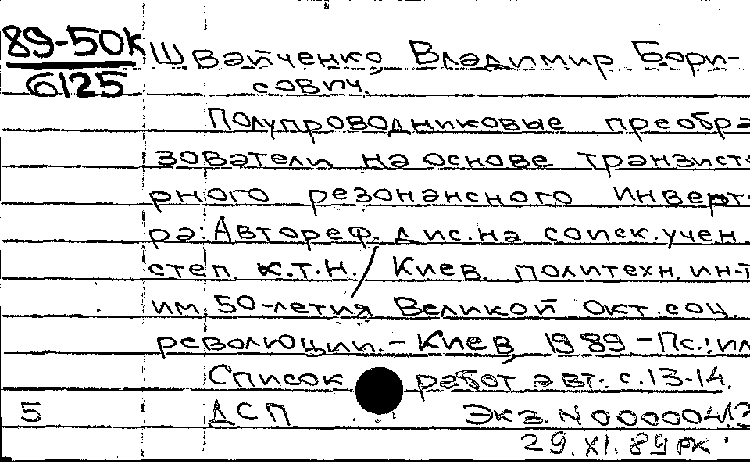 89-50К Швайченко, Владимир Бори-
6125 сович.
Полупроводниковые преобра
зователи на основе транзисто
рного резонансного инверто
ра: Автореф. дис. на соиск. учен.
степ. к.т.н. / Киев. политехн. ин-т
им. 50-летия Великой Окт. соц.
революции. - Киев, 1989 -
Список работ авт.: с. 13-14.
5 ДСП Экз. N 00000413
29.XI.89 РК